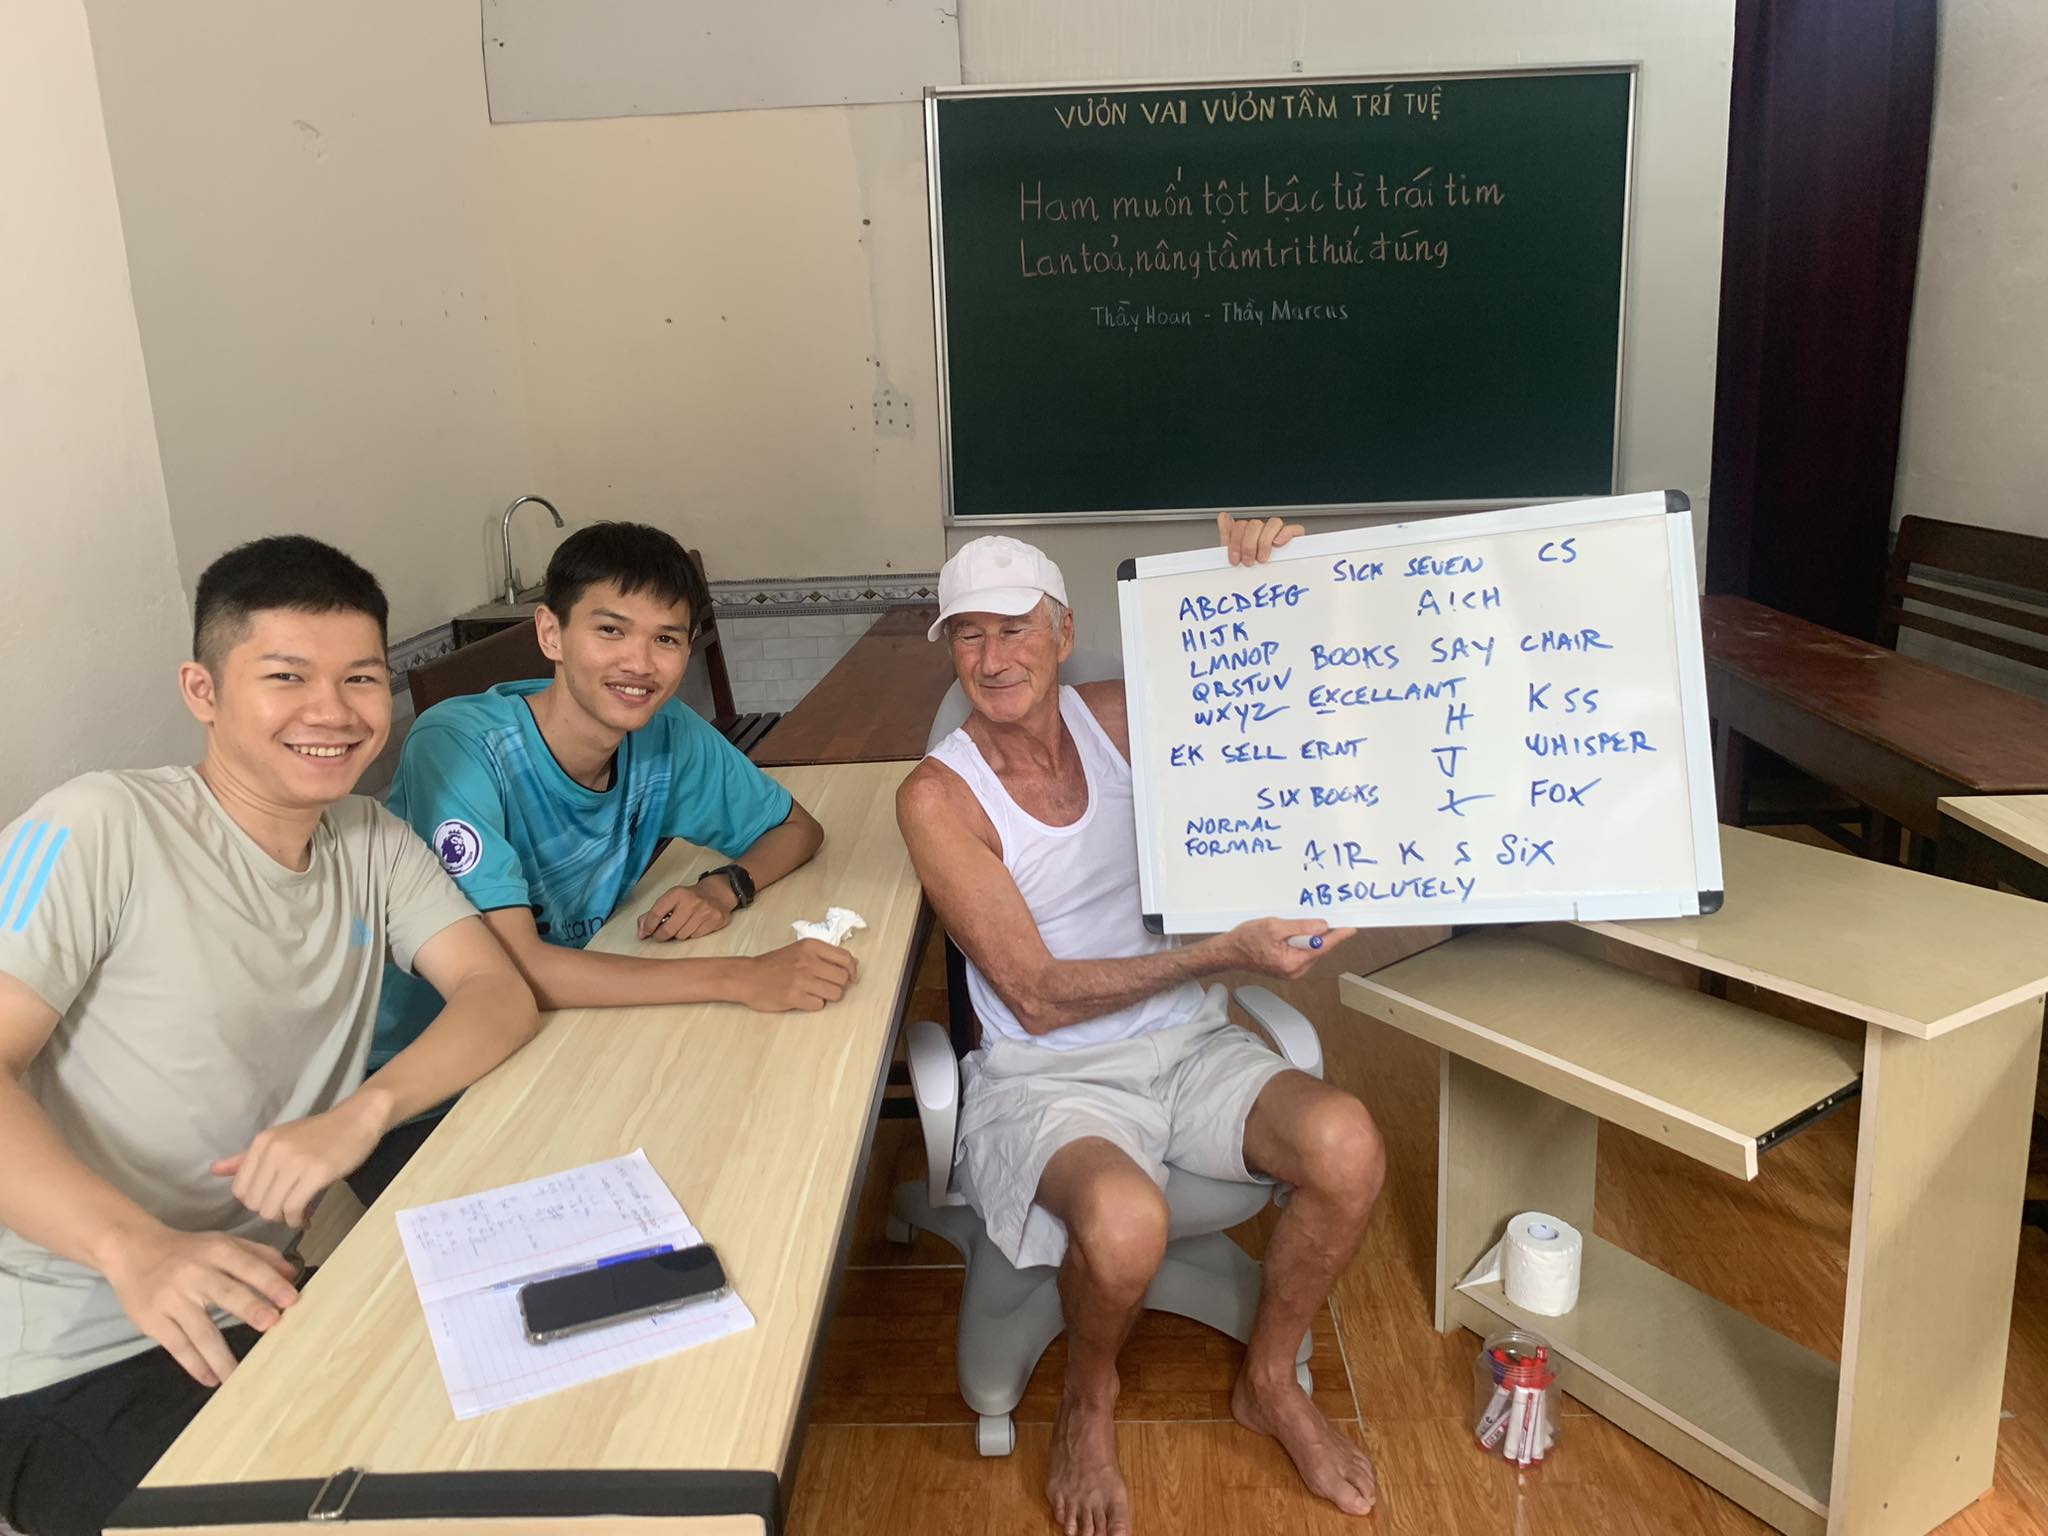 VƯƠN VAI VƯƠN TẦM TRÍ TUỆ
Ham muốn tột bậc từ trái tim
Lan toả, nâng tầm tri thức đúng
Thầy Hoan - Thầy Marcus
SICK SEVEN CS
ABCDEFG A!CH
HIJK
LMNOP BOOKS SAY CHAIR
QRSTUV EXCELLANT KSS
WXYZ H
EK SELL ERNT J WHISPER
SIX BOOKS X FOX
NORMAL
FORMAL AIR K S SiX
ABSOLUTELY